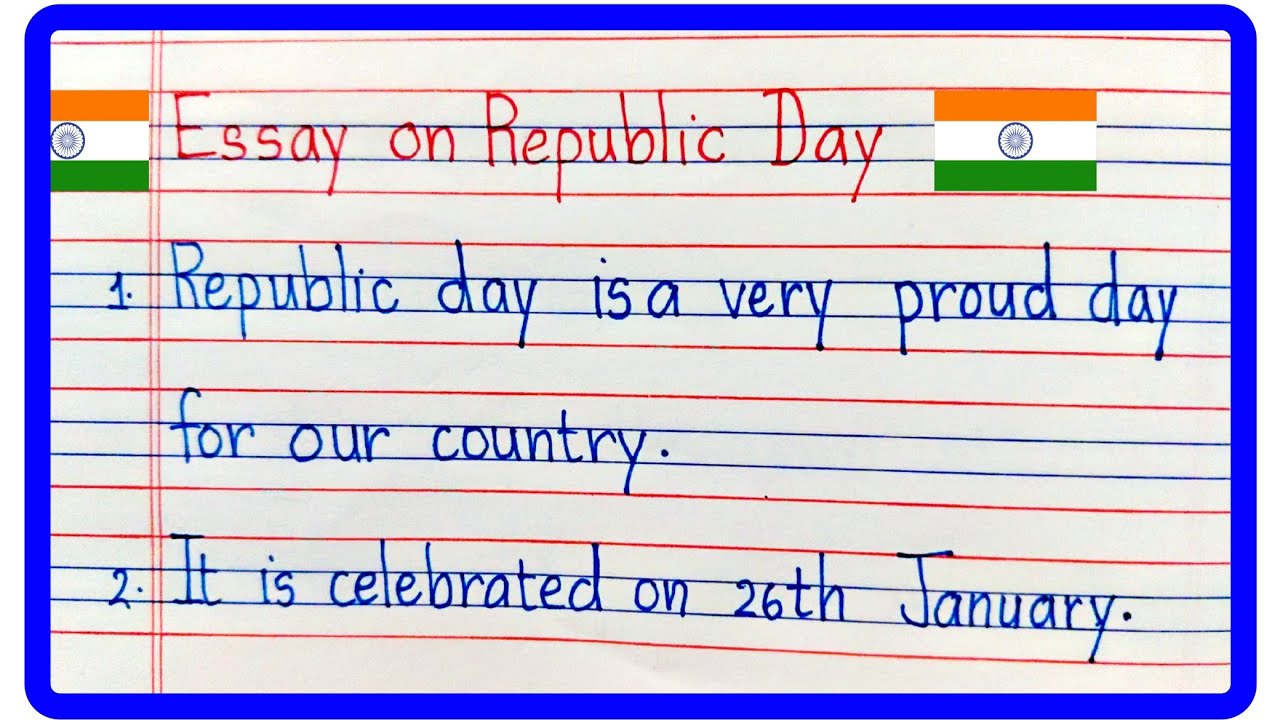 Essay on Republic Day
1. Republic day is a very proud day
for our country.
2. It is celebrated on 26th January.